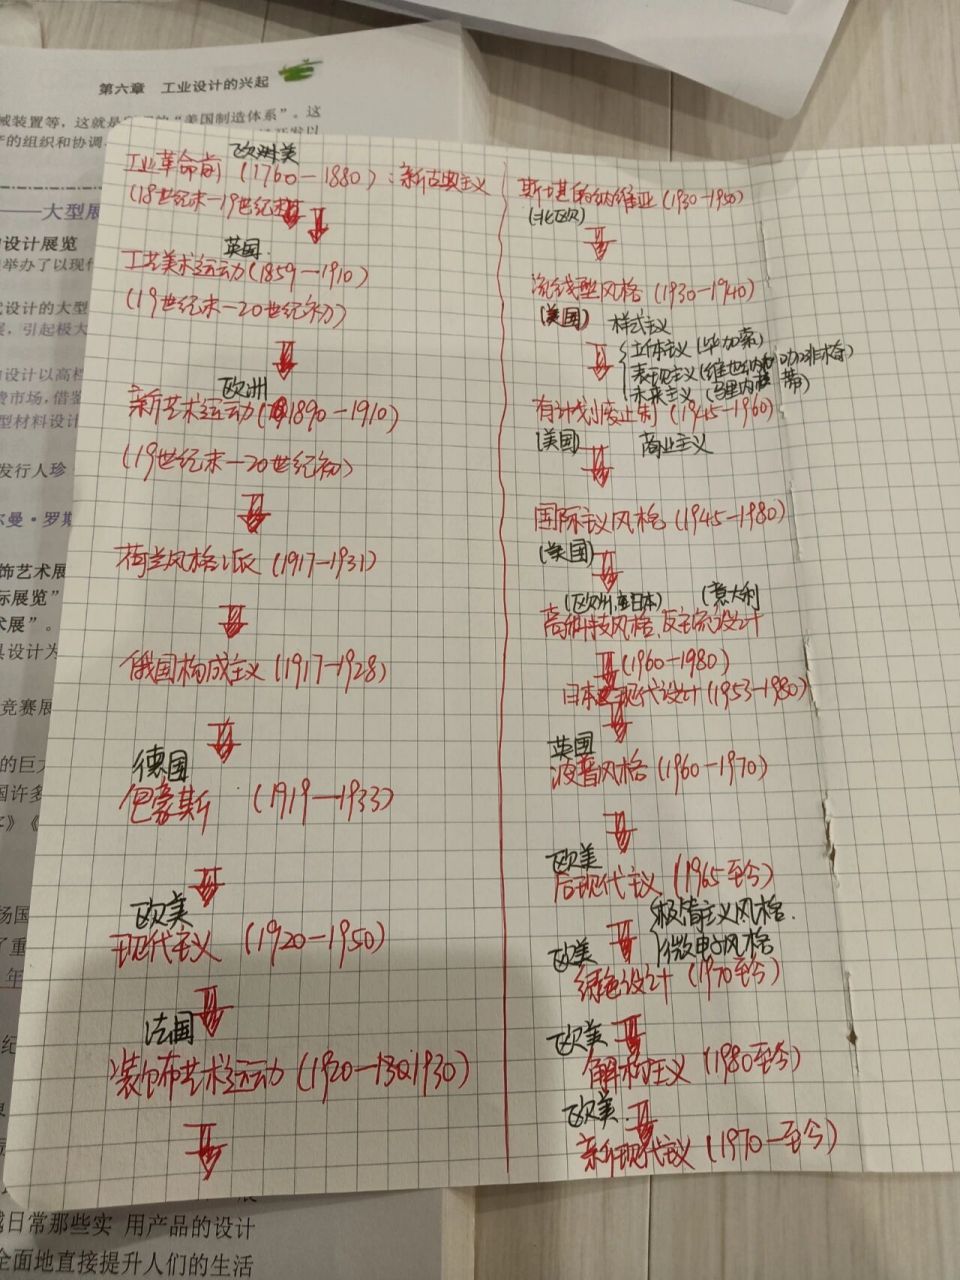 第六章 工业设计的兴起
械装置等，这就是
“美国制造体系”。这
产的组织和协调
——大型展
的设计展览
举办了以现代
式设计的大型
展，引起极大
的设计以高档
费市场，借鉴
型材料设计
发行人珍
尔曼·罗斯
饰艺术展
际展览”
术展”。
具设计为
竞赛展
的巨大
国许多
》《
场国
了重
年
纪
越日常那些实 用产品的设计
全面地直接提升人们的生活
欧洲美
工业革命前 (1760-1880)：新古典主义
(18世纪末-19世纪
英国
工艺美术运动(1859-1910)
(19世纪末-20世纪初)
欧洲
新艺术运动(1890-1910)
(19世纪末-20世纪初)
荷兰风格派 (1917-1931)
俄国构成主义 (1917-1928)
德国
包豪斯 (1919-1933)
欧美
现代主义 (1920-1950)
法国
装饰艺术运动 (1920-1930.1930)
斯堪的纳维亚 (1930-1950)
(北欧)
流线型风格 (1930-1940)
(美国) 样式主义
立体主义 (毕加索)
表现主义 (维也纳和 咖啡格)
未来主义 (马里内蒂)
有计划废止制 (1945-1960)
(美国) 商业主义
国际主义风格 (1945-1980)
(美国)
(欧洲,日本) (意大利
高科技风格、反主流设计
(1960-1980)
日本现代设计 (1953-1980)
英国
波普风格 (1960-1970)
欧美
后现代主义 (1965至今)
极简主义风格.
微电子风格
欧美
绿色设计 (1970至今)
欧美
解构主义 (1980至今)
欧美.
新现代主义 (1970-至今)